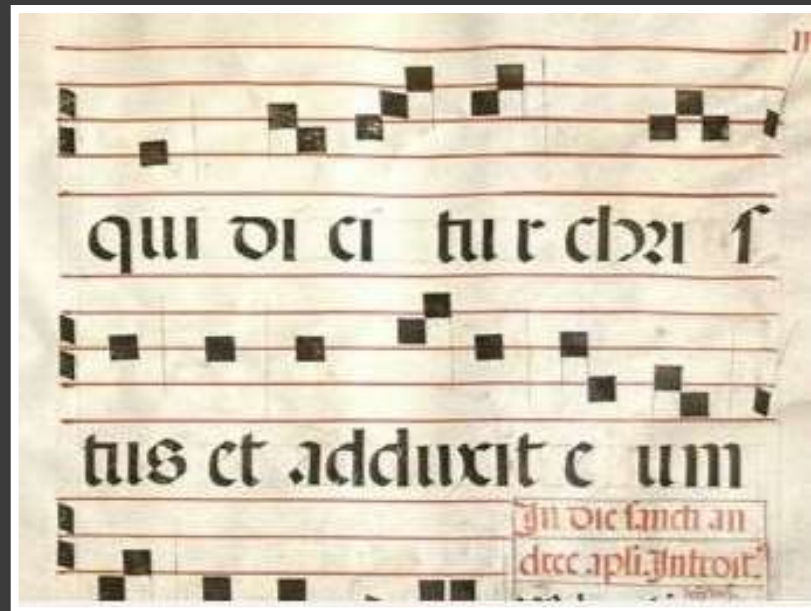 qui di ci tu r chri s
tus et adduxit e um
In die sancti an
dree apli. Introit.